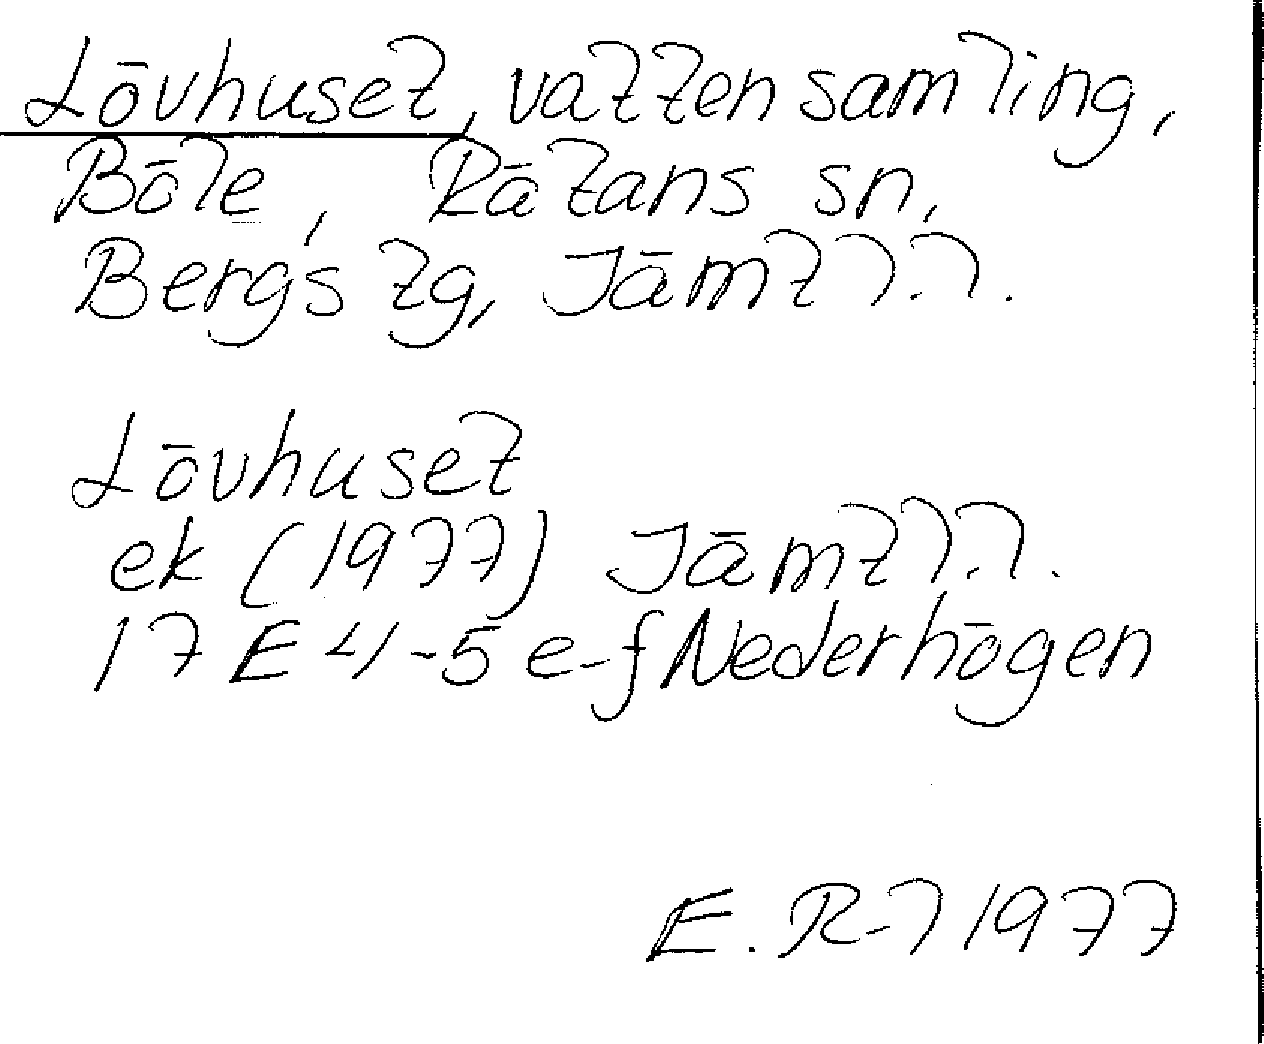 Lövhuset, vattensamling,
Böle, Rätans sn,
Bergs tg, Jämtl.l.
Lövhuset
ek (1977) Jämtl.l.
17 E 4-5 e-f Nederhögen
E. R-l 1977